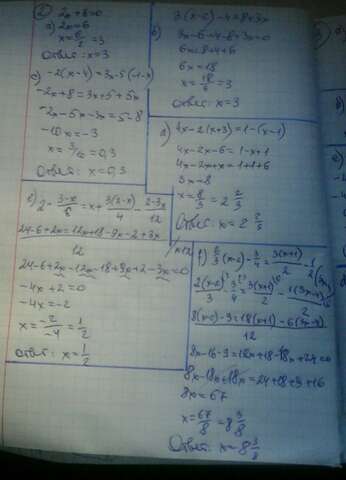 2x+6=0
а) 2x=6
x=6/2=3
Ответ: x=3
б) 3(x-2)-4=8+3x
6x=8+4+6
6x=18
x=18/6=3
Ответ: x=3
с) -2(x-4)=3x-5(-1-x)
-2x+8=3x+5+5x
-2x-5x-3x=5-8
-10x=-3
x=3/10=0,3
Ответ: x=0,3
д) 4x-2(x+3)=1-(x-1)
4x-2x-6=1-x+1
4x-2x+x=1+1+6
3x=8
x=8/3=2 2/3
Ответ: x=2 2/3
е) 2-(3-x)/6=x+3(2-x)/4-(2-3x)/12
24-6+2x=12x+18-9x-2+3x
12
24-6+2x-12x-18+9x+2-3x=0
-4x+2=0
-4x=-2
x=-2/-4=1/2
Ответ: x=1/2
8(x-2)-9=18(x+1)-6(3x-4)
12
8x-16-9=18x+18-18x+24=0
8x-18x+18x=24+18+9+16
8x=67
x=67/8=8 3/8
Ответ: x=8 3/8